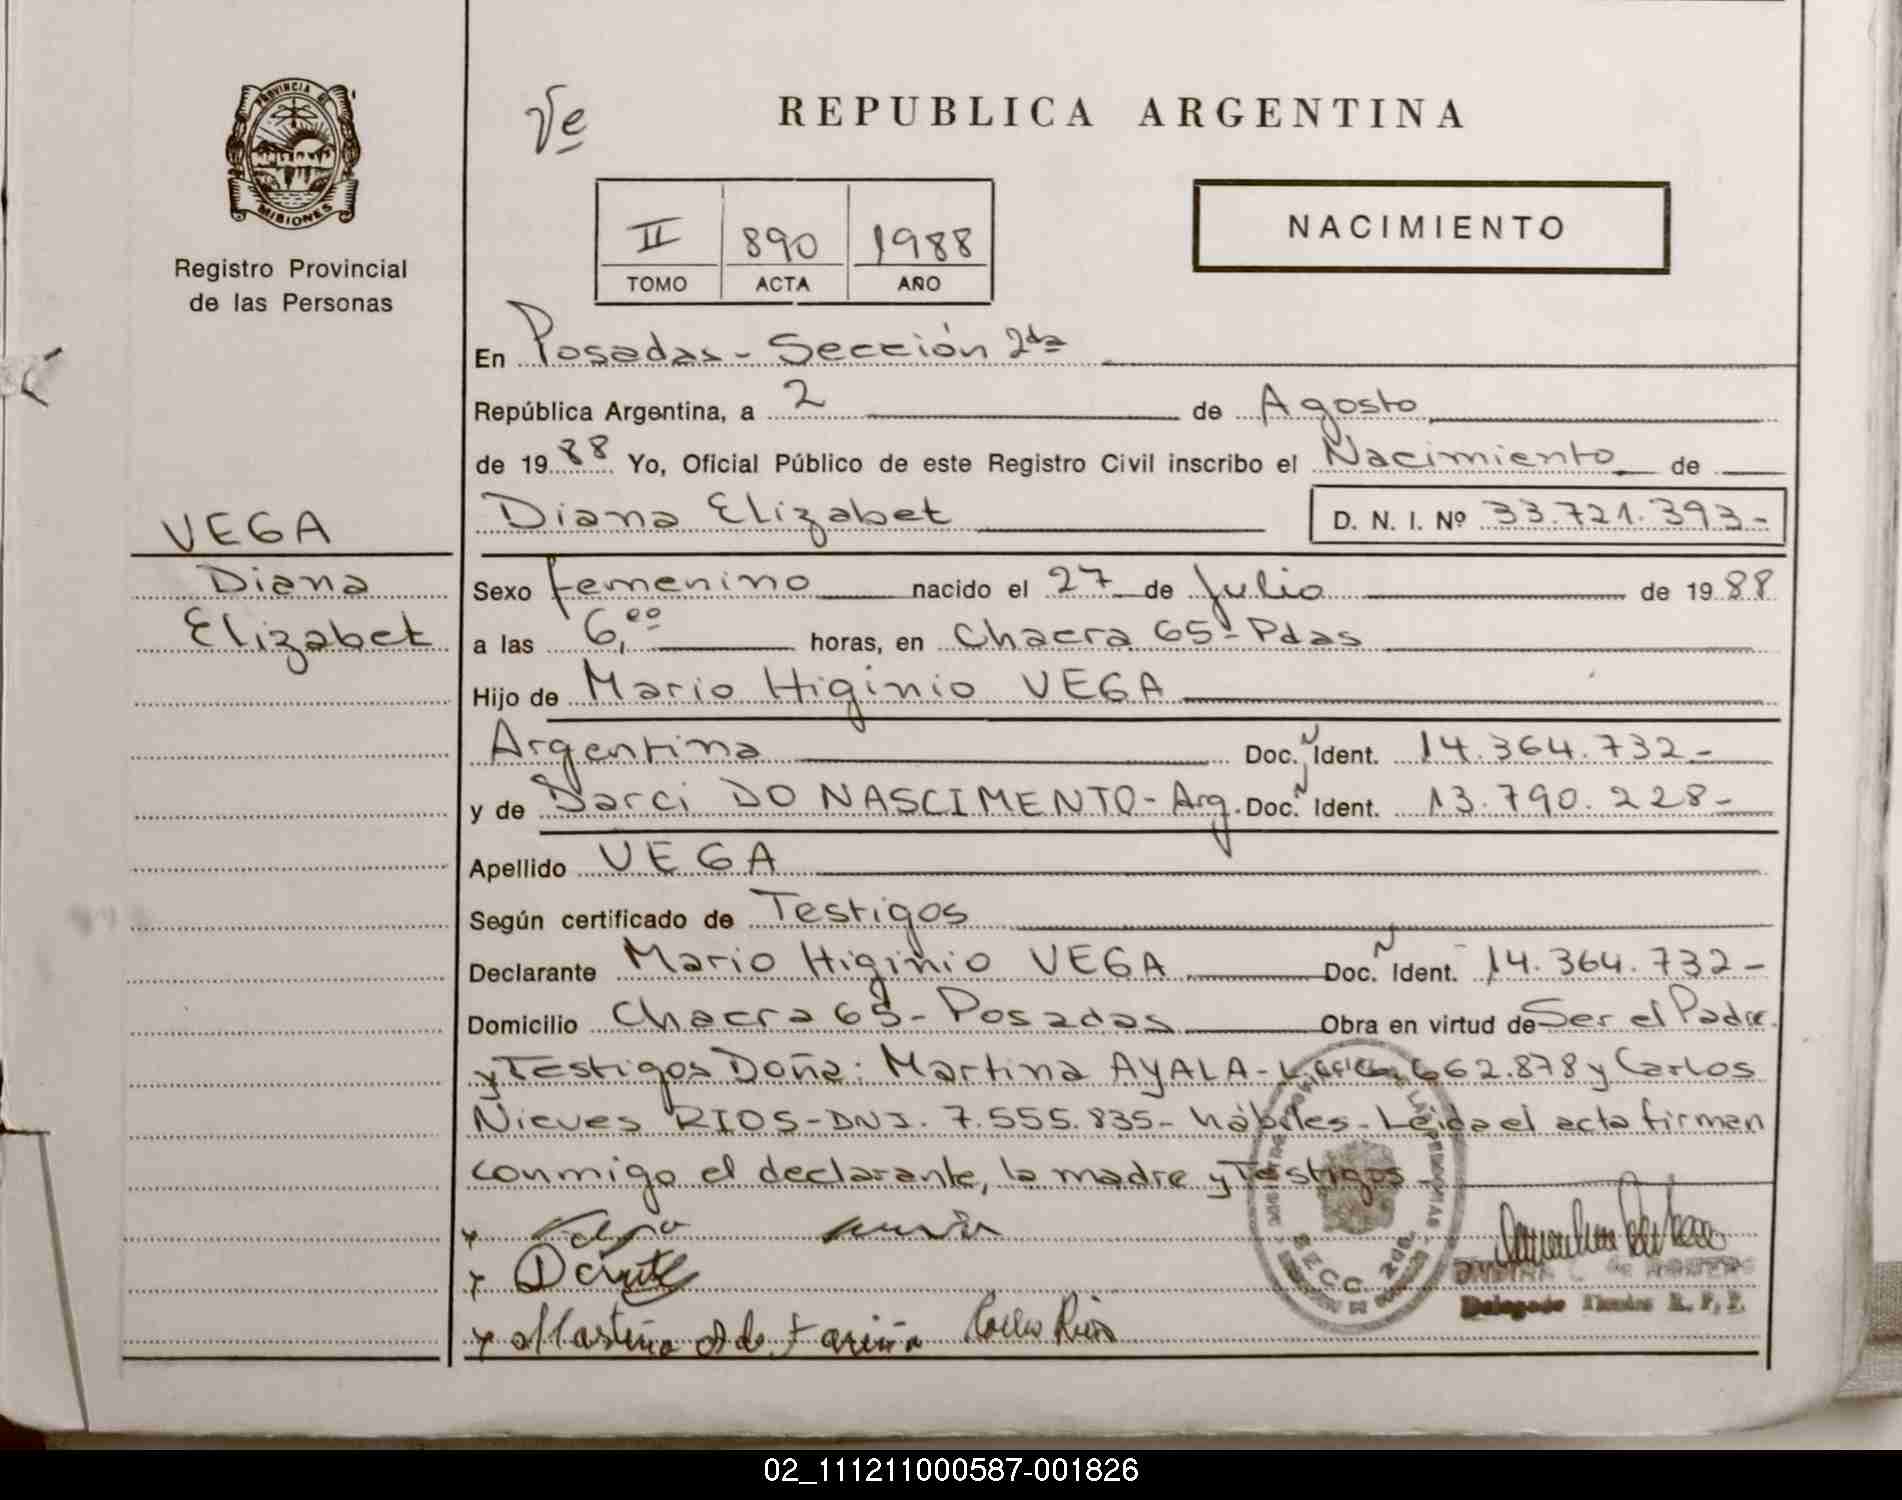 PROVINCIA DE
MISIONES
Registro Provincial
de las Personas
VEGA
Diana
Elizabet
Ve
REPUBLICA ARGENTINA
II 890 1988
TOMO ACTA AÑO
NACIMIENTO
En Posadas - Sección 2da
República Argentina, a 2 de Agosto
de 1988 Yo, Oficial Público de este Registro Civil inscribo el Nacimiento de
Diana Elizabet D. N. I. Nº 33.721.393-
Sexo femenino nacido el 27 de Julio de 1988
a las 6,00 horas, en Chacra 65 - Pdas
Hijo de Mario Higinio VEGA
Argentina Doc. N Ident. 14.364.732-
y de Darci DO NASCIMENTO - Arg. Doc. N Ident. 13.790.228-
Apellido VEGA
Según certificado de Testigos
Declarante Mario Higinio VEGA Doc. N Ident. 14.364.732-
Domicilio Chacra 65 - Posadas Obra en virtud de Ser el Padre
y Testigos Doña: Martina AYALA - 662.878 y Carlos
Nieves RIOS - DNI. 7.555.835 - hábiles - Leída el acta firman
conmigo el declarante, la madre y Testigos
SECC. 2da.
Carlos Rios
Delegado Titular R. P. P.
02_111211000587-001826